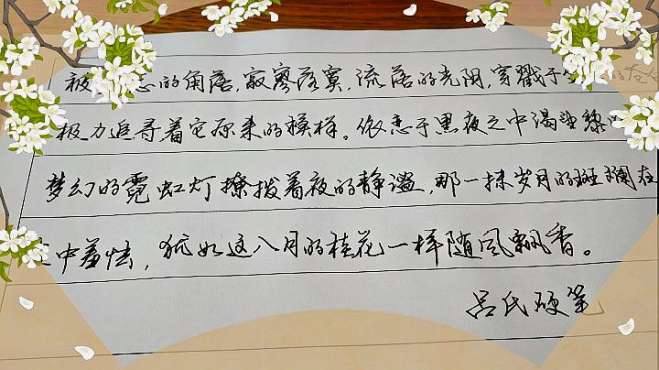 被忘的角落,寂寥落寞,流落的光阴,穿戳于
极力追寻着它原来的模样。依恋于黑夜之中渴望黎
梦幻的霓虹灯撩拨着夜的静谧,那一抹岁月的斑斓在
中羞怯,犹如这八月的桂花一样随风飘香。
吕氏硬笔